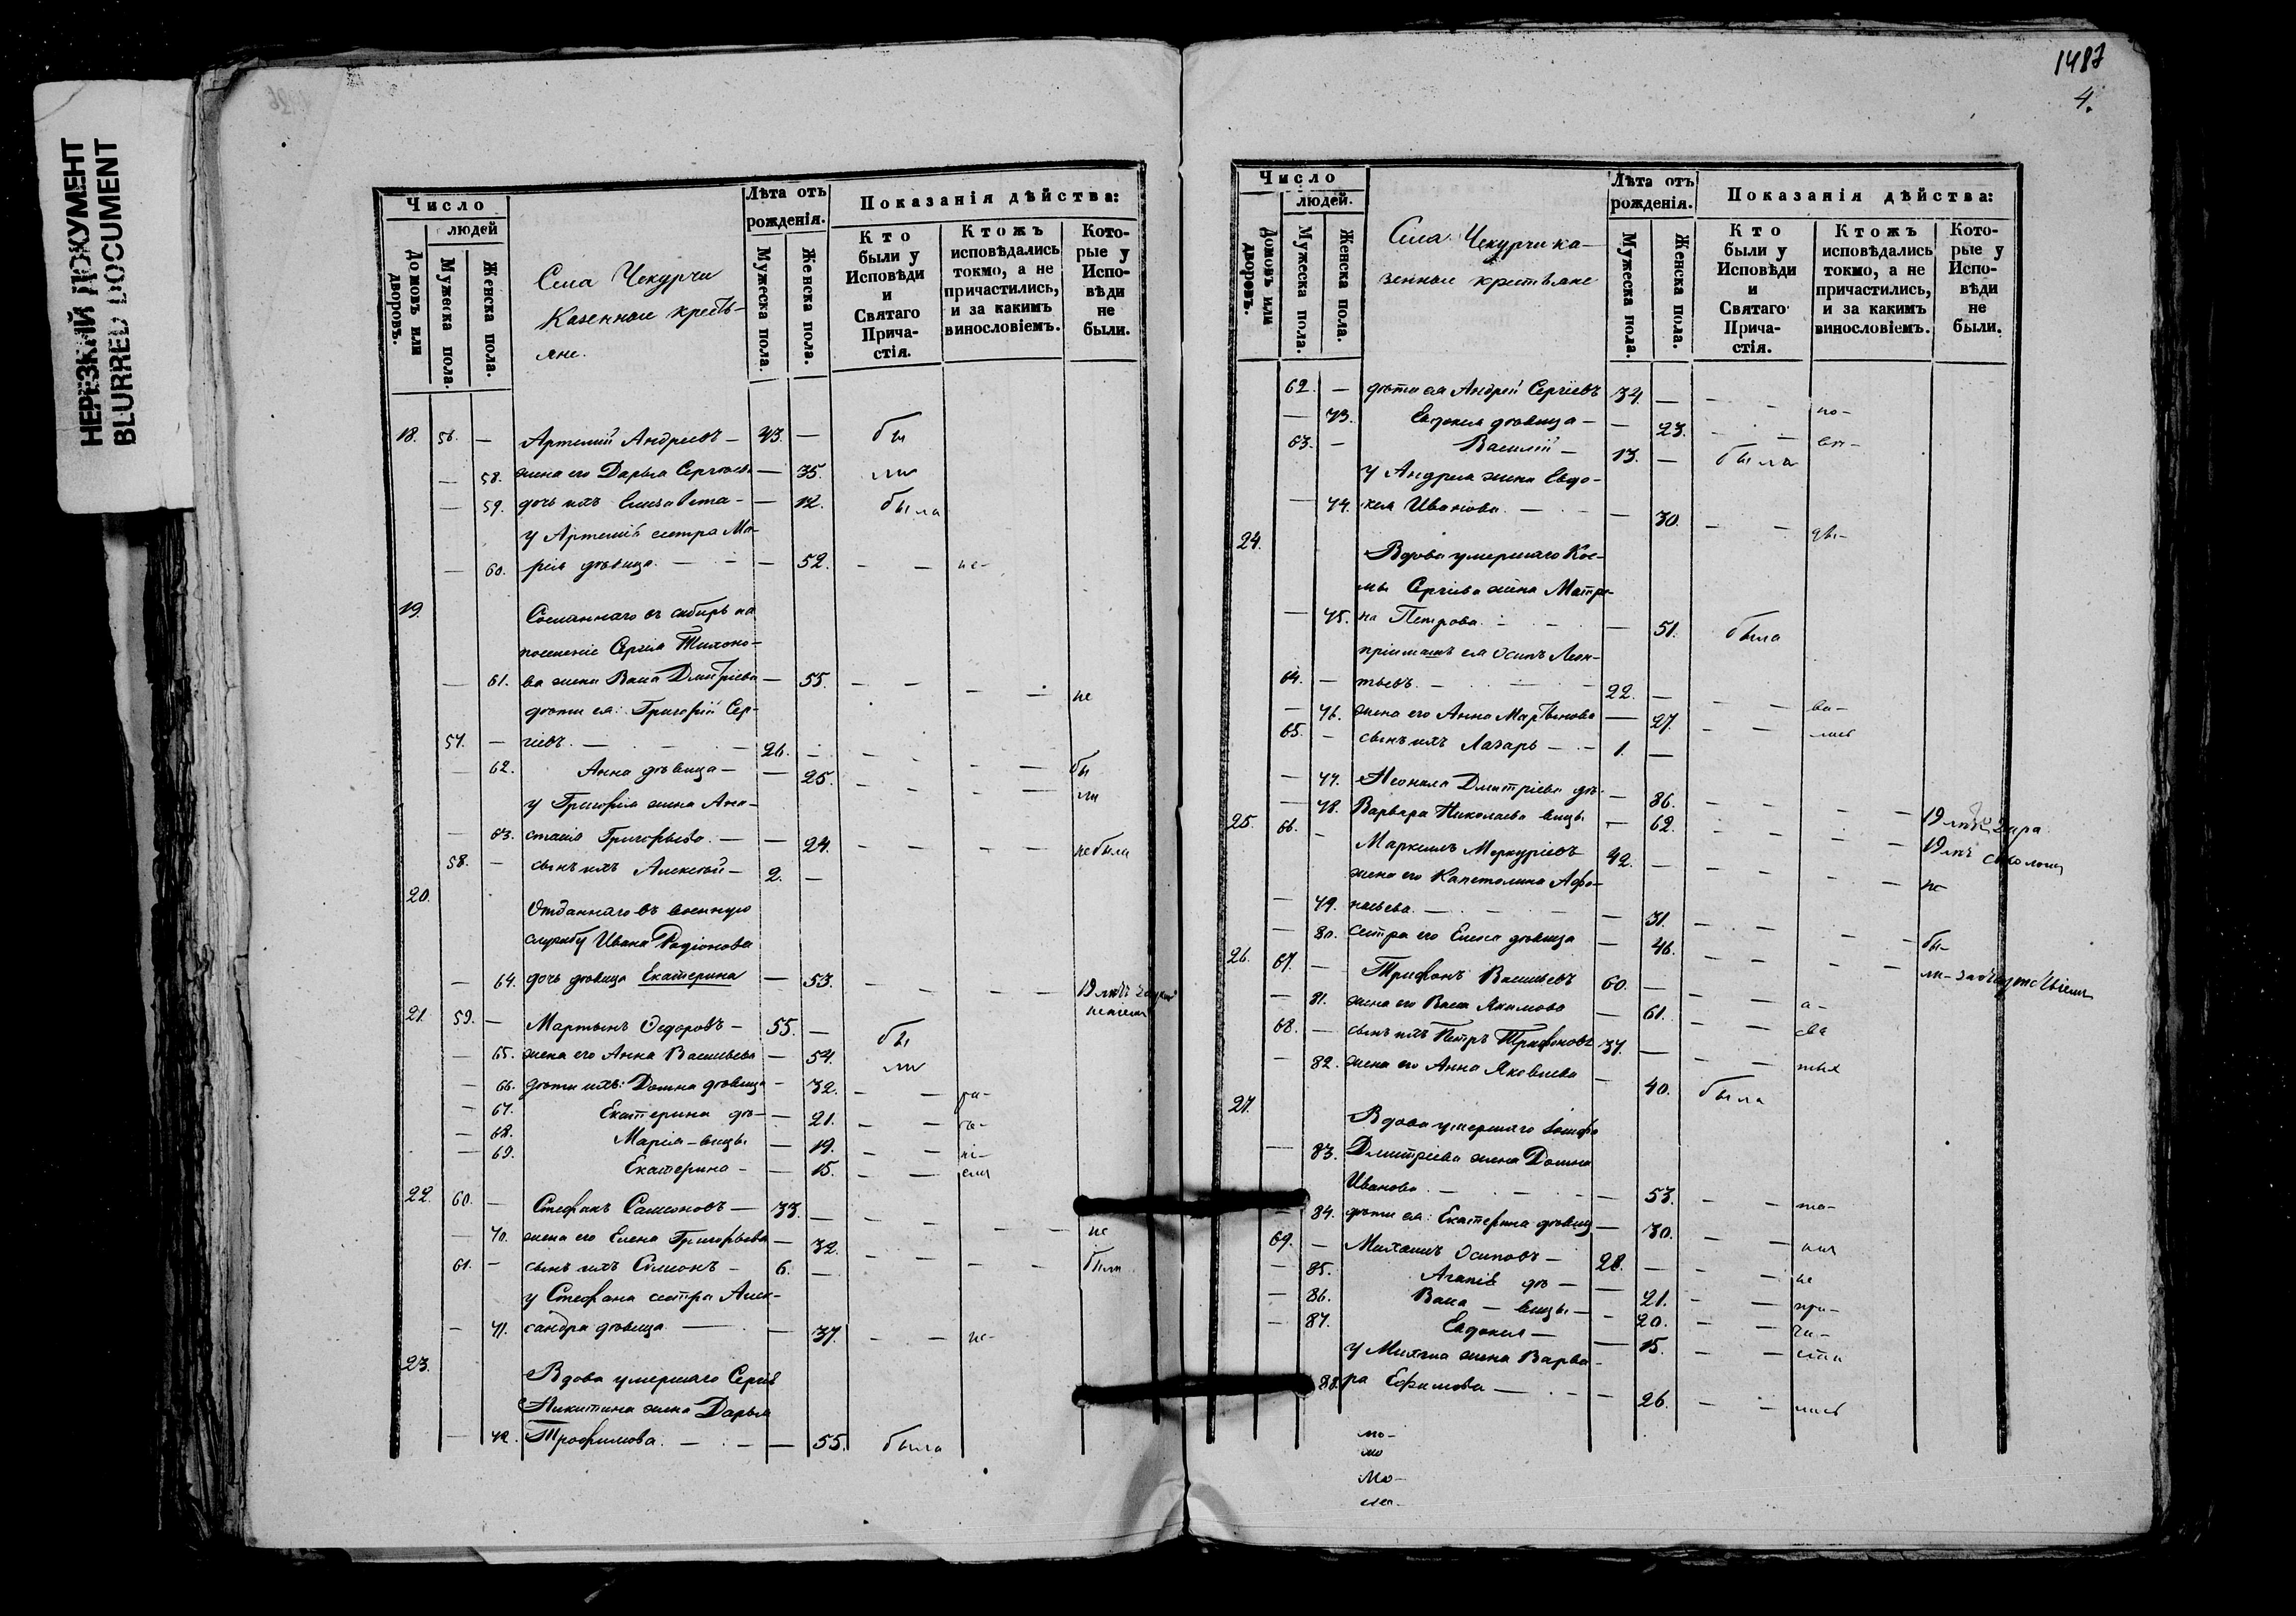 НЕРЕЗКИЙ ДОКУМЕНТ
BLURRED DOCUMENT
Число
людей
Домовъ или дворовъ.
Мужеска пола.
Женска пола.
Села Чекурчи
Казенные кресть-
яне.
Лѣта отъ
рожденія.
Мужеска пола.
Женска пола.
Показанія дѣйства:
Кто
были у
Исповѣди
и
Святаго
Прича-
стія.
Ктожъ
исповѣдались
токмо, а не
причастились,
и за какимъ
винословіемъ.
Кото-
рые у
Испо-
вѣди
не
были.
18. 56. — Артемий Андреевъ — 43. — бы
— 58. жена его Дарья Сергѣева — 35. ли
— 59. дочь ихъ Елизавета — — 12. была
у Артемія сестра Ма-
— 60. рія дѣвица — — 52. — — не-
19. Сосланнаго въ сибирь на
поселеніе Сергія Тихоно-
— 61. ва жена Васа Дмитріева — 55. — — — — не
дѣти ея: Григорій Сер-
57. — гіевъ. — — 26. —
— 62. Анна дѣвица — — 25. — — — — бы
у Григорія жена Ана- ли
— 63. стасія Григорьева — — 24. — — — — не была
58. — сынъ ихъ Алексѣй — 2. —
20. Отданнаго въ военную
службу Ивана Родіонова
— 64. дочь дѣвица Екатерина — 53. — — — — 19 лѣтъ
21. 59. — Мартынъ Ѳедоровъ — 55. — бы
— 65. жена его Анна Васильева — 54. ли
— 66. дѣти ихъ: Домна дѣвица — 32. — —
— 67. Екатерина дѣ- — 21. — —
— 68. Марія — вицы — 19. — —
— 69. Екатерина — — 15. — —
22. 60. — Стефанъ Самсоновъ — 33. — — — — — не
— 70. жена его Елена Григорьева — 32. — — — — были
61. — сынъ ихъ Симеонъ — 6. —
у Стефана сестра Алек-
— 71. сандра дѣвица — — 37. — — не-
23. Вдова умершаго Сергія
Никитина жена Дарья
— 72. Трофимова. — — — 55. была
1487
4.
Число
людей.
Домовъ или дворовъ.
Мужеска пола.
Женска пола.
Села Чекурчи ка-
зенные крестьяне
Лѣта отъ
рожденія.
Мужеска пола.
Женска пола.
Показанія дѣйства:
Кто
были у
Исповѣди
и
Святаго
Прича-
стія.
Ктожъ
исповѣдались
токмо, а не
причастились,
и за какимъ
винословіемъ.
Кото-
рые у
Испо-
вѣди
не
были.
62. — дѣти ея Андрей Сергіевъ 34. — — — по-
— 73. Евдокія дѣвица — — 23. — —
63. — Василій — 13. — была
у Андрея жена Евдо-
— 74. кія Иванова. — — 30. — —
24. Вдова умершаго Кос-
мы Сергіева жена Матро-
— 75. на Петрова. — — 51. была
пріимышъ ея Осипъ Леон-
64. — тьевъ. — — 22. — — — ва-
— 76. жена его Анна Мартынова — 27. — — лись
65. — сынъ ихъ Лазарь — — 1. —
— 77. Неонила Дмитріева дѣ- — 86. — — — — 19 лѣтъ
— 78. Варвара Николаева вицы — 62. — — — — 19 лѣтъ
25. 66. — Маркеллъ Меркуріевъ 42. — — — — — не
жена его Капетолина Афо-
— 79. насьева. — — — 31. — — — — бы-
— 80. сестра его Елена дѣвица — 46. — — — — ли-
26. 67. — Трифонъ Васильевъ 60. — — —
— 81. жена его Васа Якимова — 61. — —
68. — сынъ ихъ Петръ Трифоновъ 37. — — —
— 82. жена его Анна Яковлева — 40. была
27. Вдова умершаго Іосифа
— 83. Дмитріева жена Домна
Иванова. — — — 53. — —
— 84. дѣти ея: Екатерина дѣвица — 30. — —
69. — Михаилъ Осиповъ — 28. — — — не
— 85. Агапія дѣ — — 21. — — при-
— 86. Васа — вицы — — 20. — — ча-
— 87. Евдокія — — 15. — — сти
у Михаила жена Варва-
88. ра Ефимова — — 26. — — лись